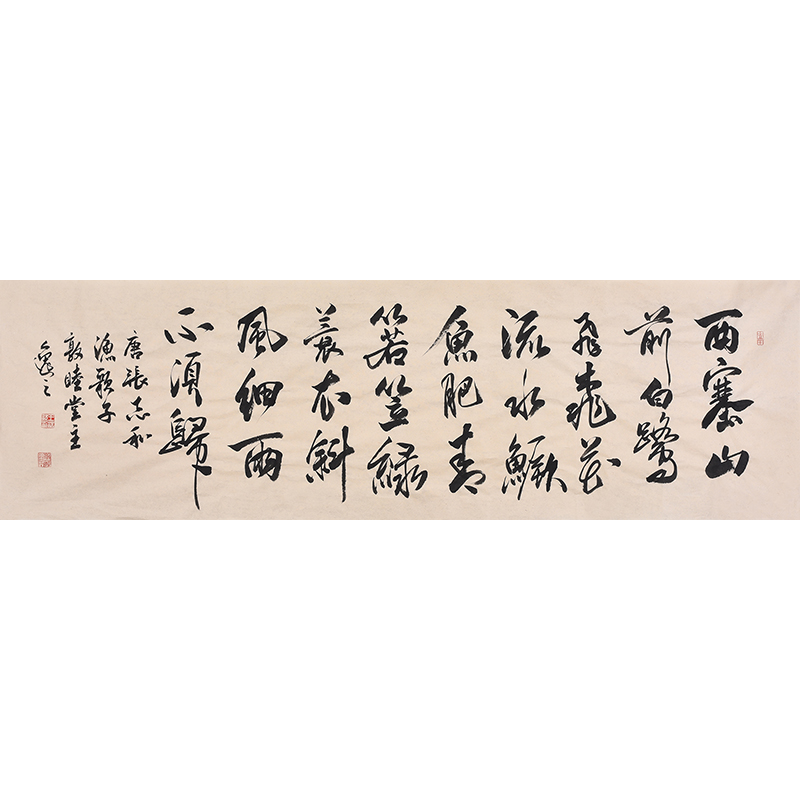 西塞山
前白鷺
飛桃花
流水鱖
魚肥青
箬笠綠
蓑衣斜
風細雨
不須歸
唐張志和
漁歌子
敦睦堂主